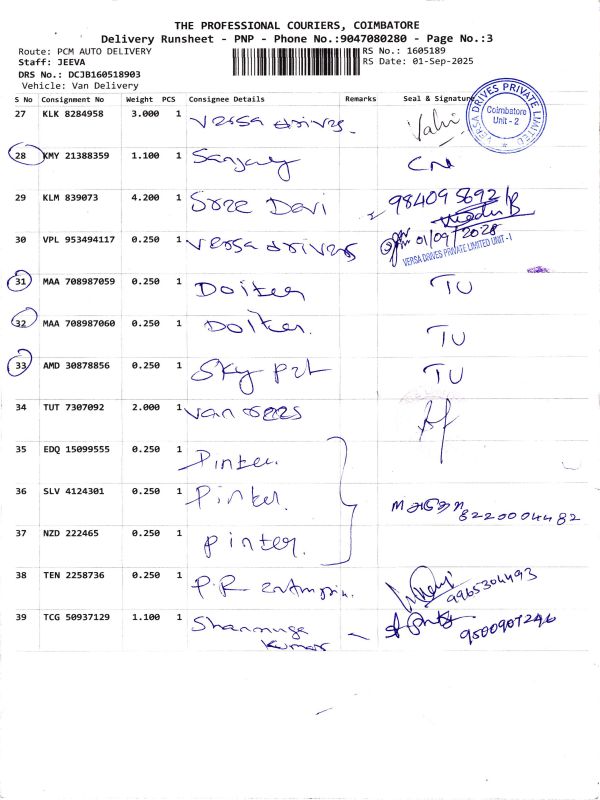 THE PROFESSIONAL COURIERS, COIMBATORE
Delivery Runsheet - PNP - Phone No.:9047080280 - Page No.:3
Route: PCM AUTO DELIVERY
RS No.: 1605189
Staff: JEEVA
RS Date: 01-Sep-2025
DRS No.: DCJB160518903
Vehicle: Van Delivery
S No Consignment No Weight PCS Consignee Details Remarks Seal & Signature
VERSA DRIVES PRIVATE LIMITED
Coimbatore
Unit - 2
27 KLK 8284958 3.000 1 Versa drives.
28 KMY 21388359 1.100 1 Sanjay CN
29 KLM 839073 4.200 1 Devi 984095 8692
30 VPL 953494117 0.250 1 Versa drives 01/09/2028
VERSA DRIVES PRIVATE LIMITED UNIT-I
31 MAA 708987059 0.250 1 TU
32 MAA 708987060 0.250 1 TU
33 AMD 30878856 0.250 1 Sky TU
34 TUT 7307092 2.000 1 Van
35 EDQ 15099555 0.250 1 Pinter.
36 SLV 4124301 0.250 1 Pinter. 8220004482
37 NZD 222465 0.250 1 Pinter.
38 TEN 2258736 0.250 1 P.R 9965304493
39 TCG 50937129 1.100 1 Shanmuga
Kumar 9500907246